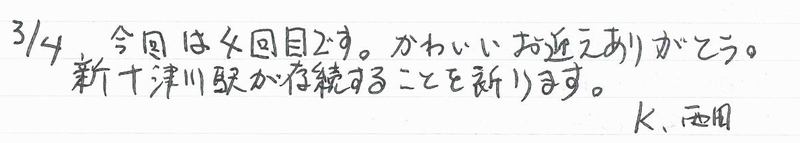 3/4 今回は4回目です。かわいいお迎えありがとう。
新十津川駅が存続することを祈ります。
K、西田